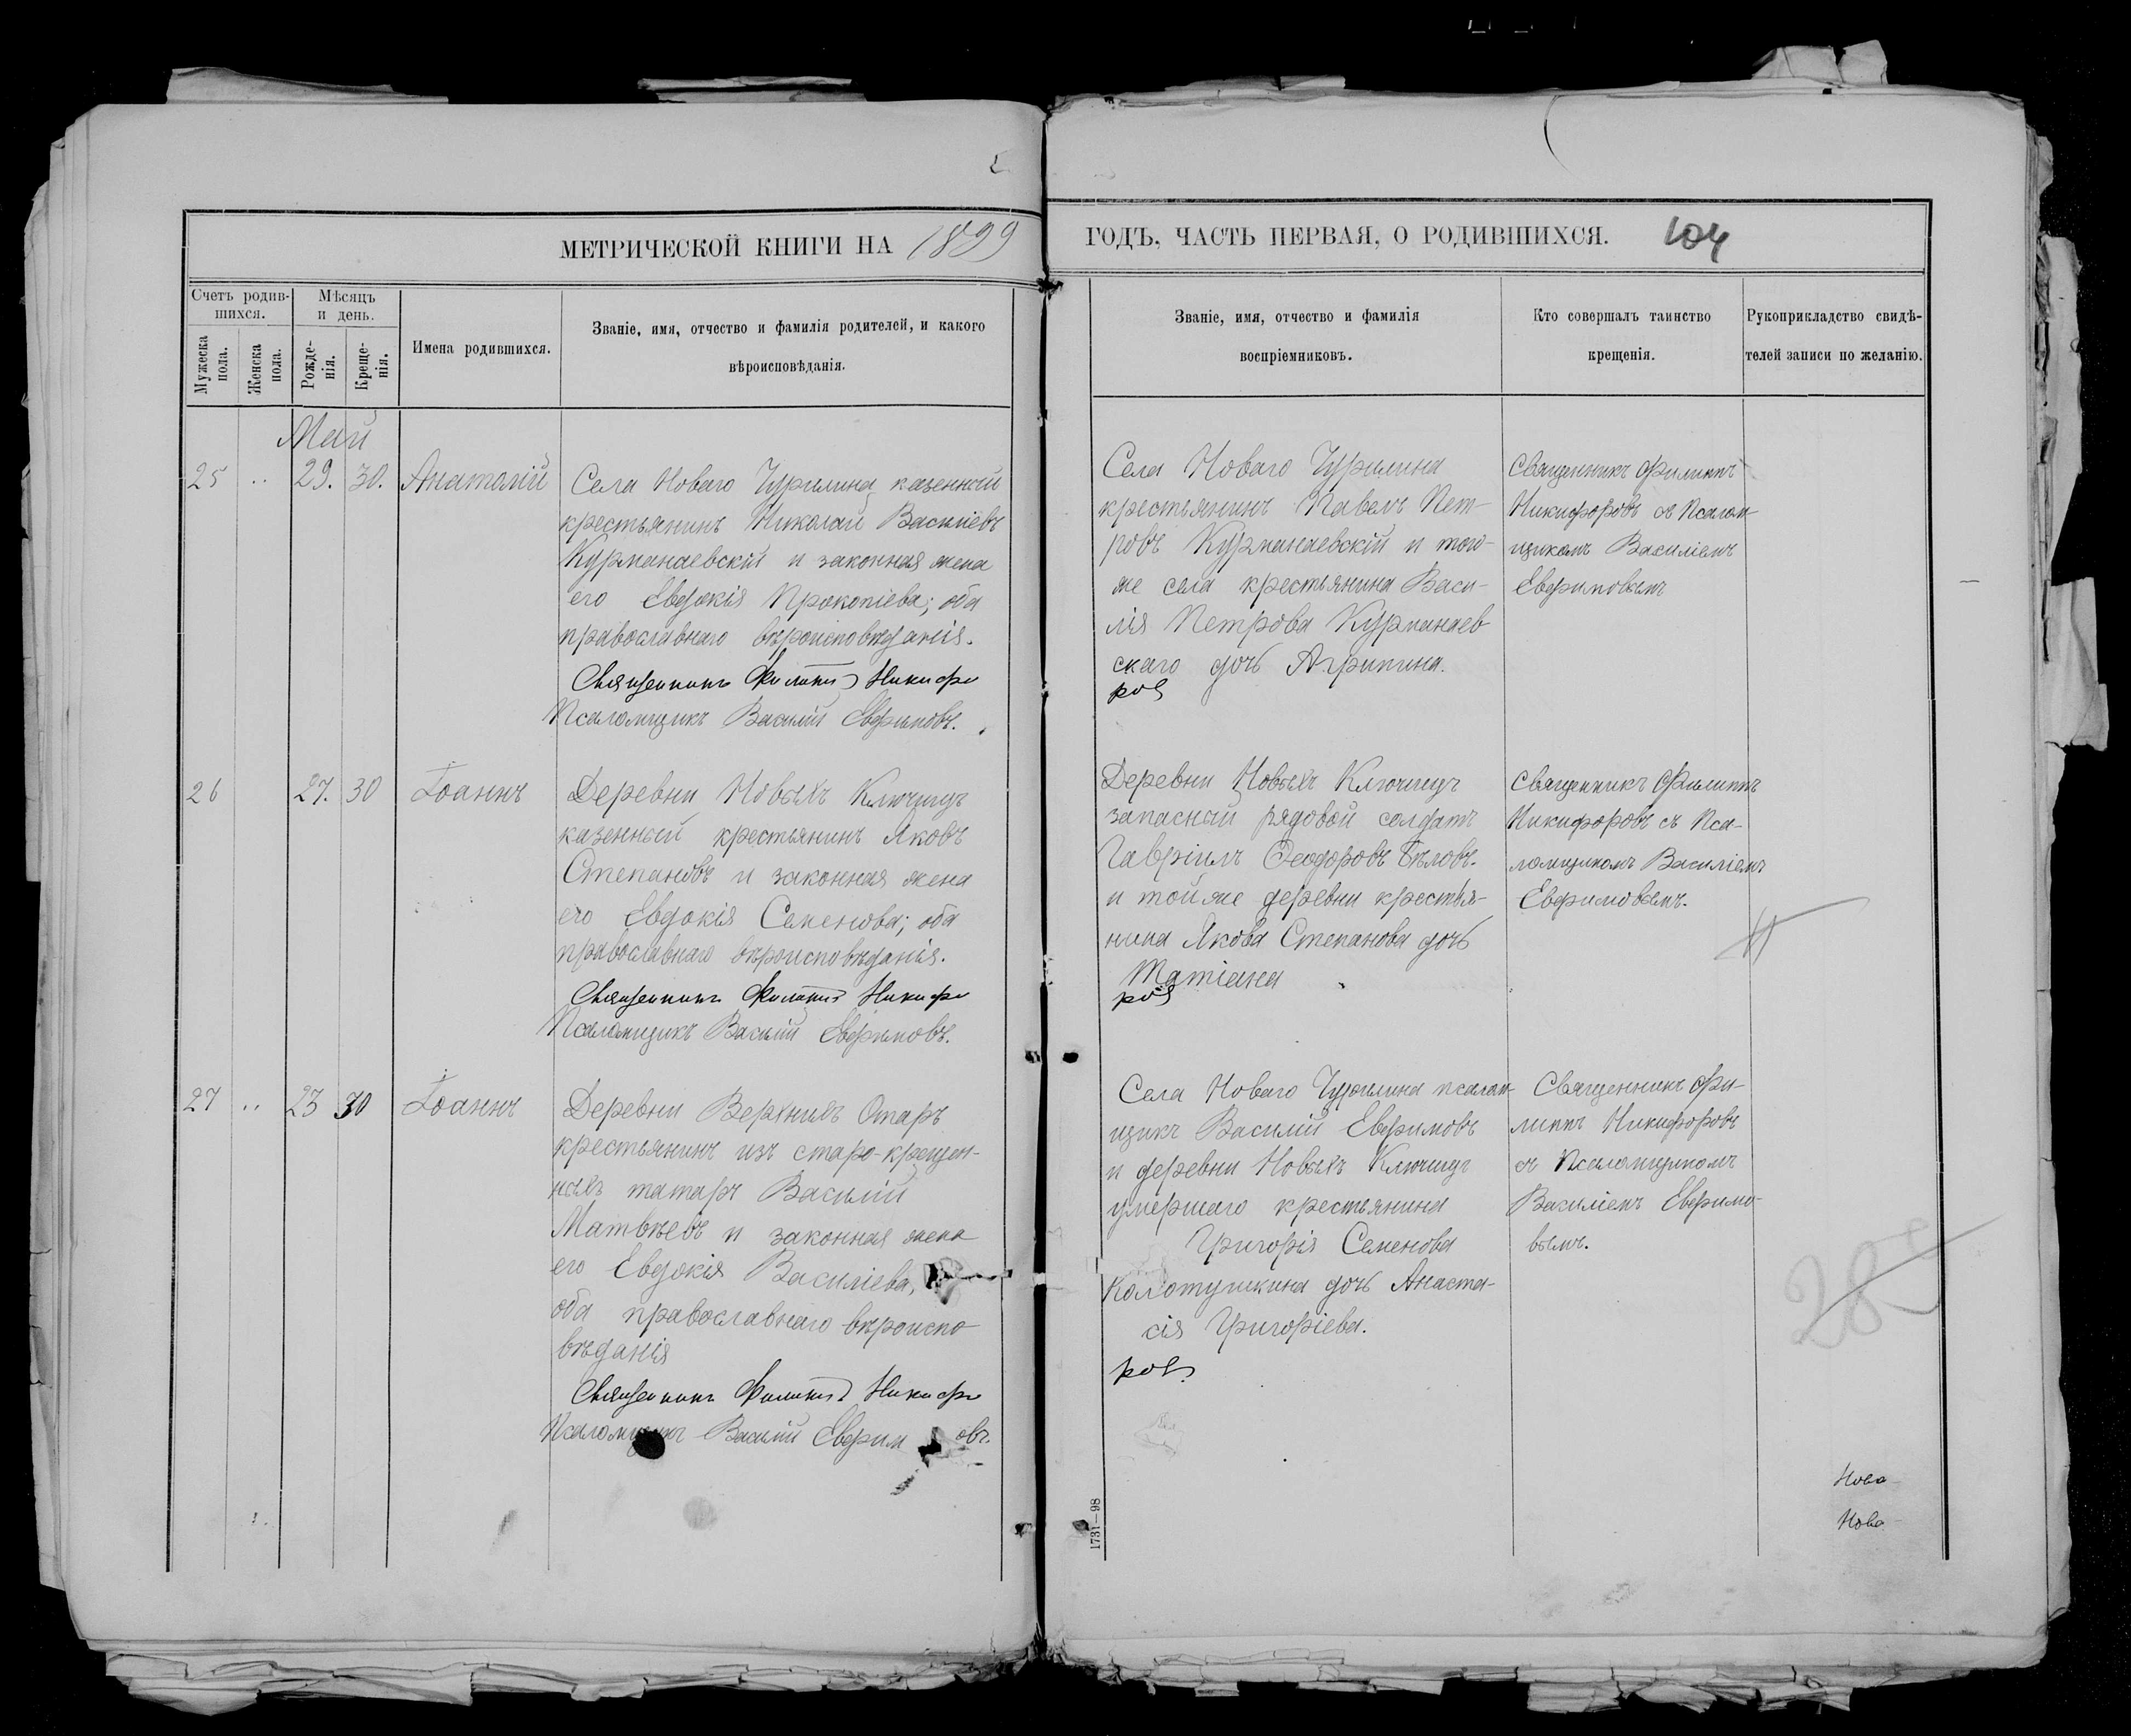 МЕТРИЧЕСКОЙ КНИГИ НА 1899
ГОДЪ, ЧАСТЬ ПЕРВАЯ, О РОДИВШИХСЯ. 104
Счетъ родив-
шихся.
Мужеска
пола.
Женска
пола.
Мѣсяцъ
и день.
Рожде-
нія.
Креще-
нія.
Имена родившихся.
Званіе, имя, отчество и фамилія родителей, и какого
вѣроисповѣданія.
Званіе, имя, отчество и фамилія
воспріемниковъ.
Кто совершалъ таинство
крещенія.
Рукоприкладство свидѣ-
телей записи по желанію.
Май
25 .. 29. 30. Анатолій
Села Новаго Чурилина казенный
крестьянинъ Николай Василіевъ
Курманаевскій и законная жена
его Евдокія Прокопіева; оба
православнаго вѣроисповѣданія.
Священникъ Филиппъ Никифо
Псаломщикъ Василій Евфимовъ.
Села Новаго Чурилина
крестьянинъ Павелъ Пет-
ровъ Курманаевскій и того-
же села крестьянина Васи-
лія Петрова Курманаев
скаго дочь Агрипина.
ров
Священникъ Филиппъ
Никифоровъ съ Псалом-
щикомъ Василіемъ
Евфимовымъ
26 27. 30 Іоаннъ
Деревни Новыхъ Ключищъ
казенный крестьянинъ Яковъ
Степановъ и законная жена
его Евдокія Семенова; оба
православнаго вѣроисповѣданія.
Священникъ Филиппъ Никифо
Псаломщикъ Василій Евфимовъ.
Деревни Новыхъ Ключищъ
запасный рядовой солдатъ
Гавріилъ Ѳеодоровъ Бѣловъ.
и той же деревни крестья-
нина Якова Степанова дочь
Татіана
ров
Священникъ Филиппъ
Никифоровъ съ Пса-
ломщикомъ Василіемъ
Евфимовымъ.
27 .. 23 30 Іоаннъ
Деревни Верхнихъ Отаръ
крестьянинъ изъ старо-крещен-
ныхъ татаръ Василій
Матвѣевъ и законная жена
его Евдокія Василіева,
оба православнаго вѣроиспо
вѣданія
Священникъ Филиппъ Никифо
Псаломщикъ Василій Евфимовъ.
Села Новаго Чурилина псалом-
щикъ Василій Евфимовъ
и деревни Новыхъ Ключищъ
умершаго крестьянина
Григорія Семенова
Колотушкина дочь Анаста-
сія Григоріева.
ров.
Священникъ Фи-
липпъ Никифоровъ
съ Псаломщикомъ
Василіемъ Евфимо-
вымъ.
285
Ново
Ново
1731—98